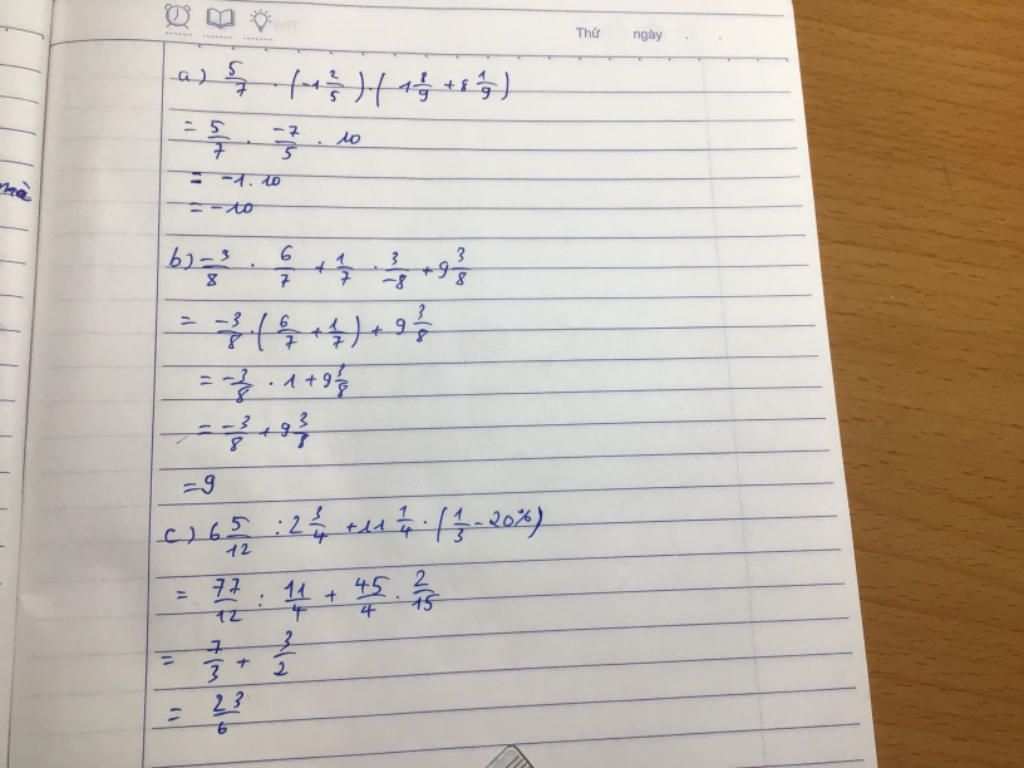 Thứ ngày
mà
a) 5/7 · (-1 2/5) · (1 8/9 + 8 1/9)
= 5/7 · -7/5 · 10
= -1 . 10
= -10
b) -3/8 · 6/7 + 1/7 · 3/-8 + 9 3/8
= -3/8 · (6/7 + 1/7) + 9 3/8
= -3/8 · 1 + 9 3/8
= -3/8 + 9 3/8
= 9
c) 6 5/12 : 2 3/4 + 11 1/4 · (1/3 - 20%)
= 77/12 : 11/4 + 45/4 · 2/15
= 7/3 + 3/2
= 23/6